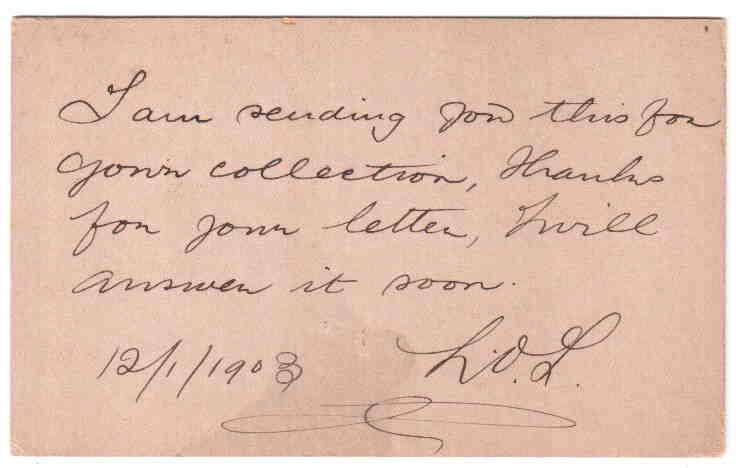 I am sending you this for
your collection, Thanks
for your letter, I will
answer it soon.
12/1/1903
L.O.L.